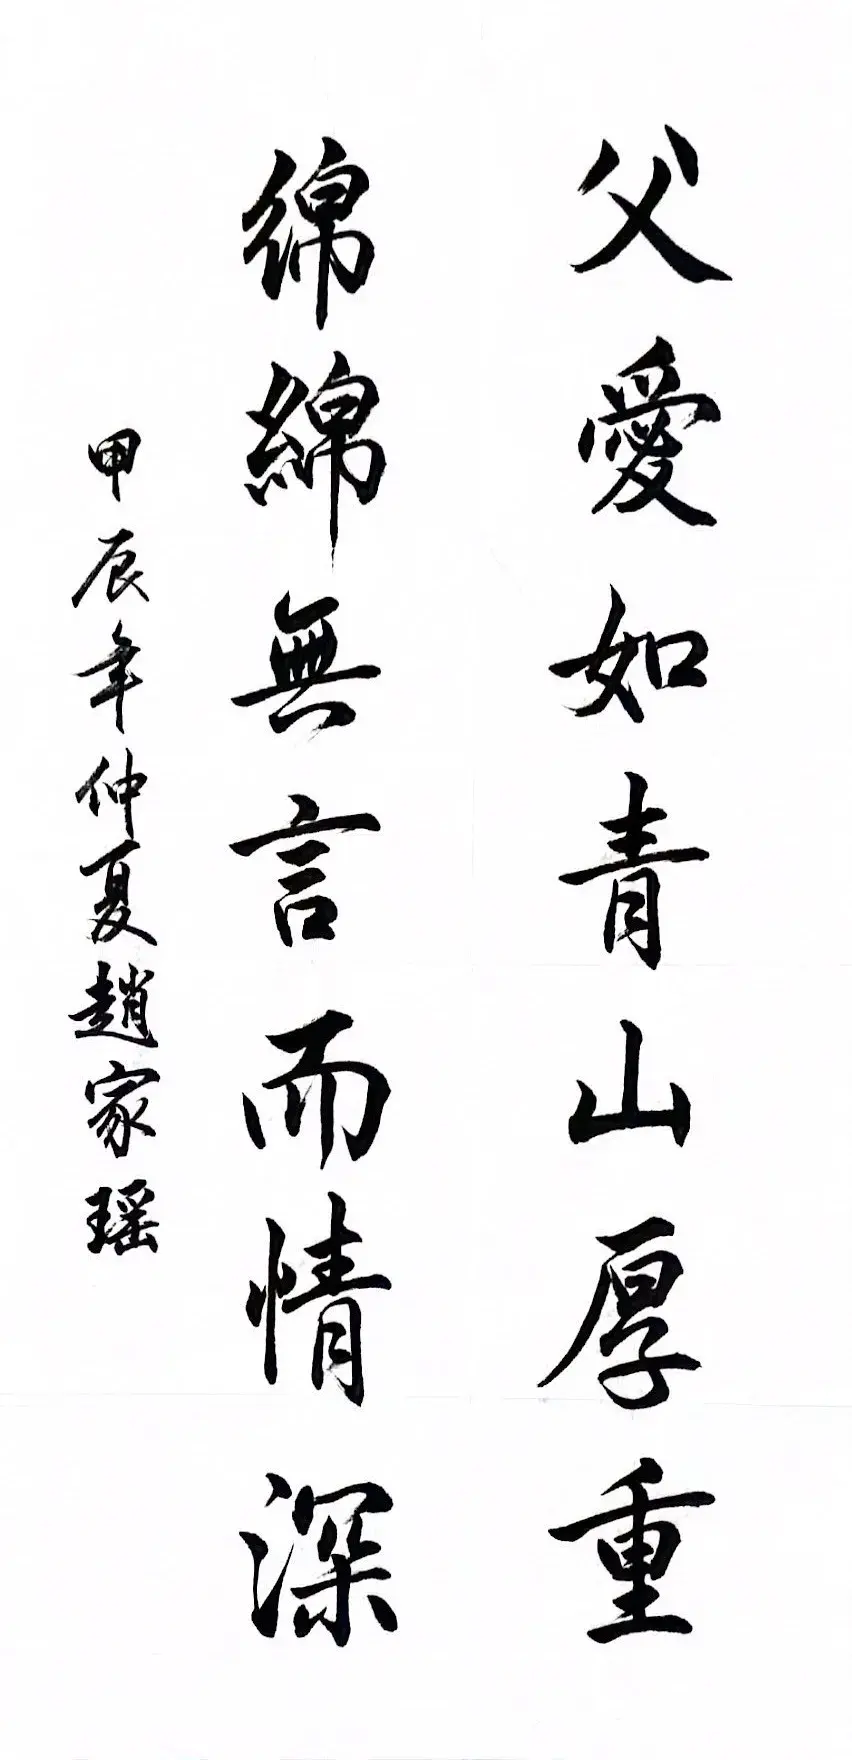 父愛如青山厚重
綿綿無言而情深
甲辰年仲夏趙家瑶